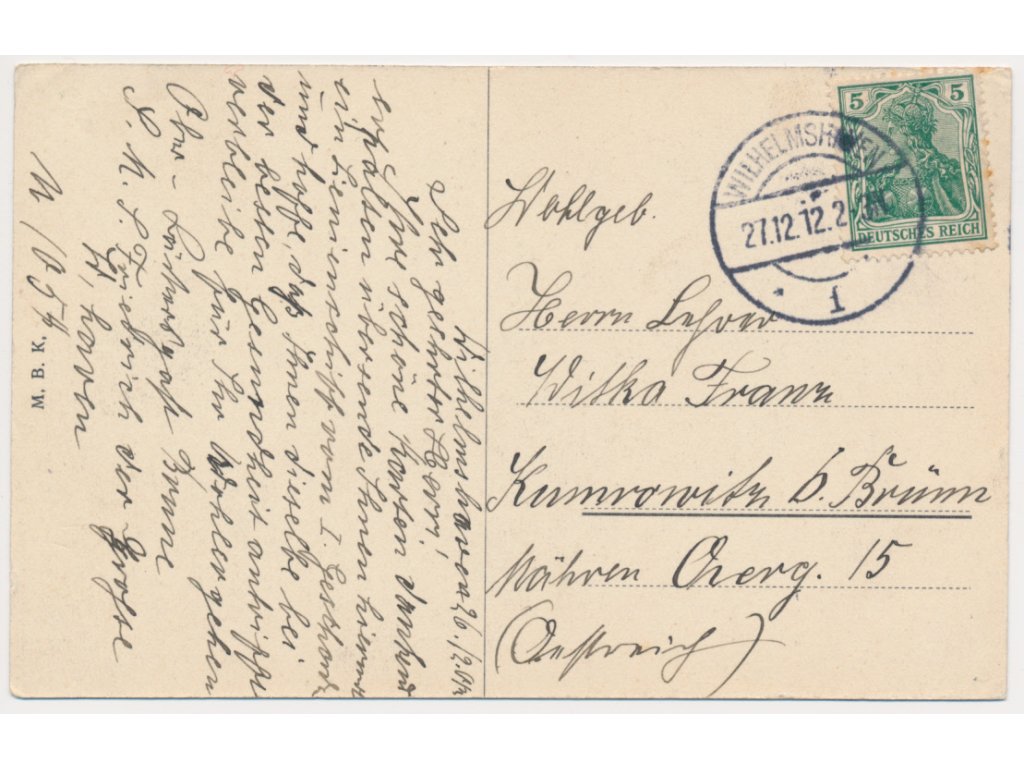 Wilhelmshaven 26./12.
Sehr geehrter Herr!
Ihre schöne Karten dankend
erhalten übersende Ihnen hiermit
ein Linienschiff vom I. Geschwader
und hoffe, daß Ihnen dieselbe bei
der besten Gesundheit antrifft
verbleibe für Ihr Wohlergehen
Ober-
S. M. S. Friedrich der Grosse
W, haven
M. B. K.
5
5
DEUTSCHES REICH
WILHELMSHAVEN
27.12.12.2-
* 1
Wohlgeb.
Herrn Lehrer
Witka Franz
Kumrowitz b. Brünn
Mähren Czerg. 15
(Oestreich)